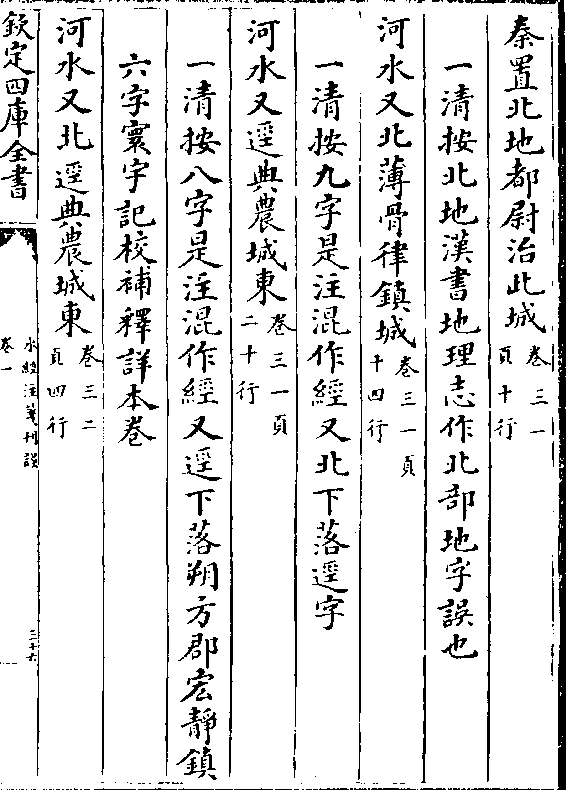 秦置北地都尉治此城卷三一頁十行
一清按北地漢書地理志作北部地字誤也
河水又北薄骨律鎮城卷三一頁十四行
一清按九字是注混作經又北下落逕字
河水又逕典農城東卷三一頁二十行
一清按八字是注混作經又逕下落朔方郡宏靜鎮
六字寰宇記校補釋詳本卷
河水又北逕典農城東卷三二頁四行
欽定四庫全書
水經注箋刊誤
卷一
三十六